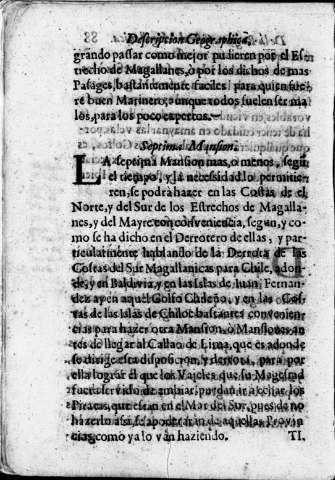 Descripcion Geographica,
grando passar como mejor pudieren por el Es-
trecho de Magallanes, ò por los dichos de mas
Pasages, bastantemente faciles para quien fue-
re buen Marinero, aunque todos suelen ser ma-
los, para los poco expertos.
Septima Mansion.
LA septima Mansion mas, o menos, segũ
el tiempo, y la necesidad lo permitie-
ren, se podrà hazer en las Costas de el
Norte, y del Sur de los Estrechos de Magalla-
nes, y del Mayre con conveniencia, segun, y co-
mo se ha dicho en el Derrotero de ellas, y par-
ticularmente hablando de la Derrota de las
Costas del Sur Magallanicas para Chile, adon-
de, y en Baldivia, y en las Islas de Iuan Fernan-
dez ay en aquel Golfo Chileño, y en las Cos-
tas de las Islas de Chiloe bastantes convenien-
cias para hazer otra Mansion, ò Mansiones an-
tes de llegar al Callao de Lima, que es adonde
se dirige esta disposicion, y derrota, para por
ella lograr el que los Vajeles que su Magestad
fuere servido de embiar, puedan ir a echar los
Piratas, que estan en el Mar del Sur, pues de no
hazerlo assi, se apoderaràn de aquellas Provin-
cias, como ya lo van haziendo. TI.